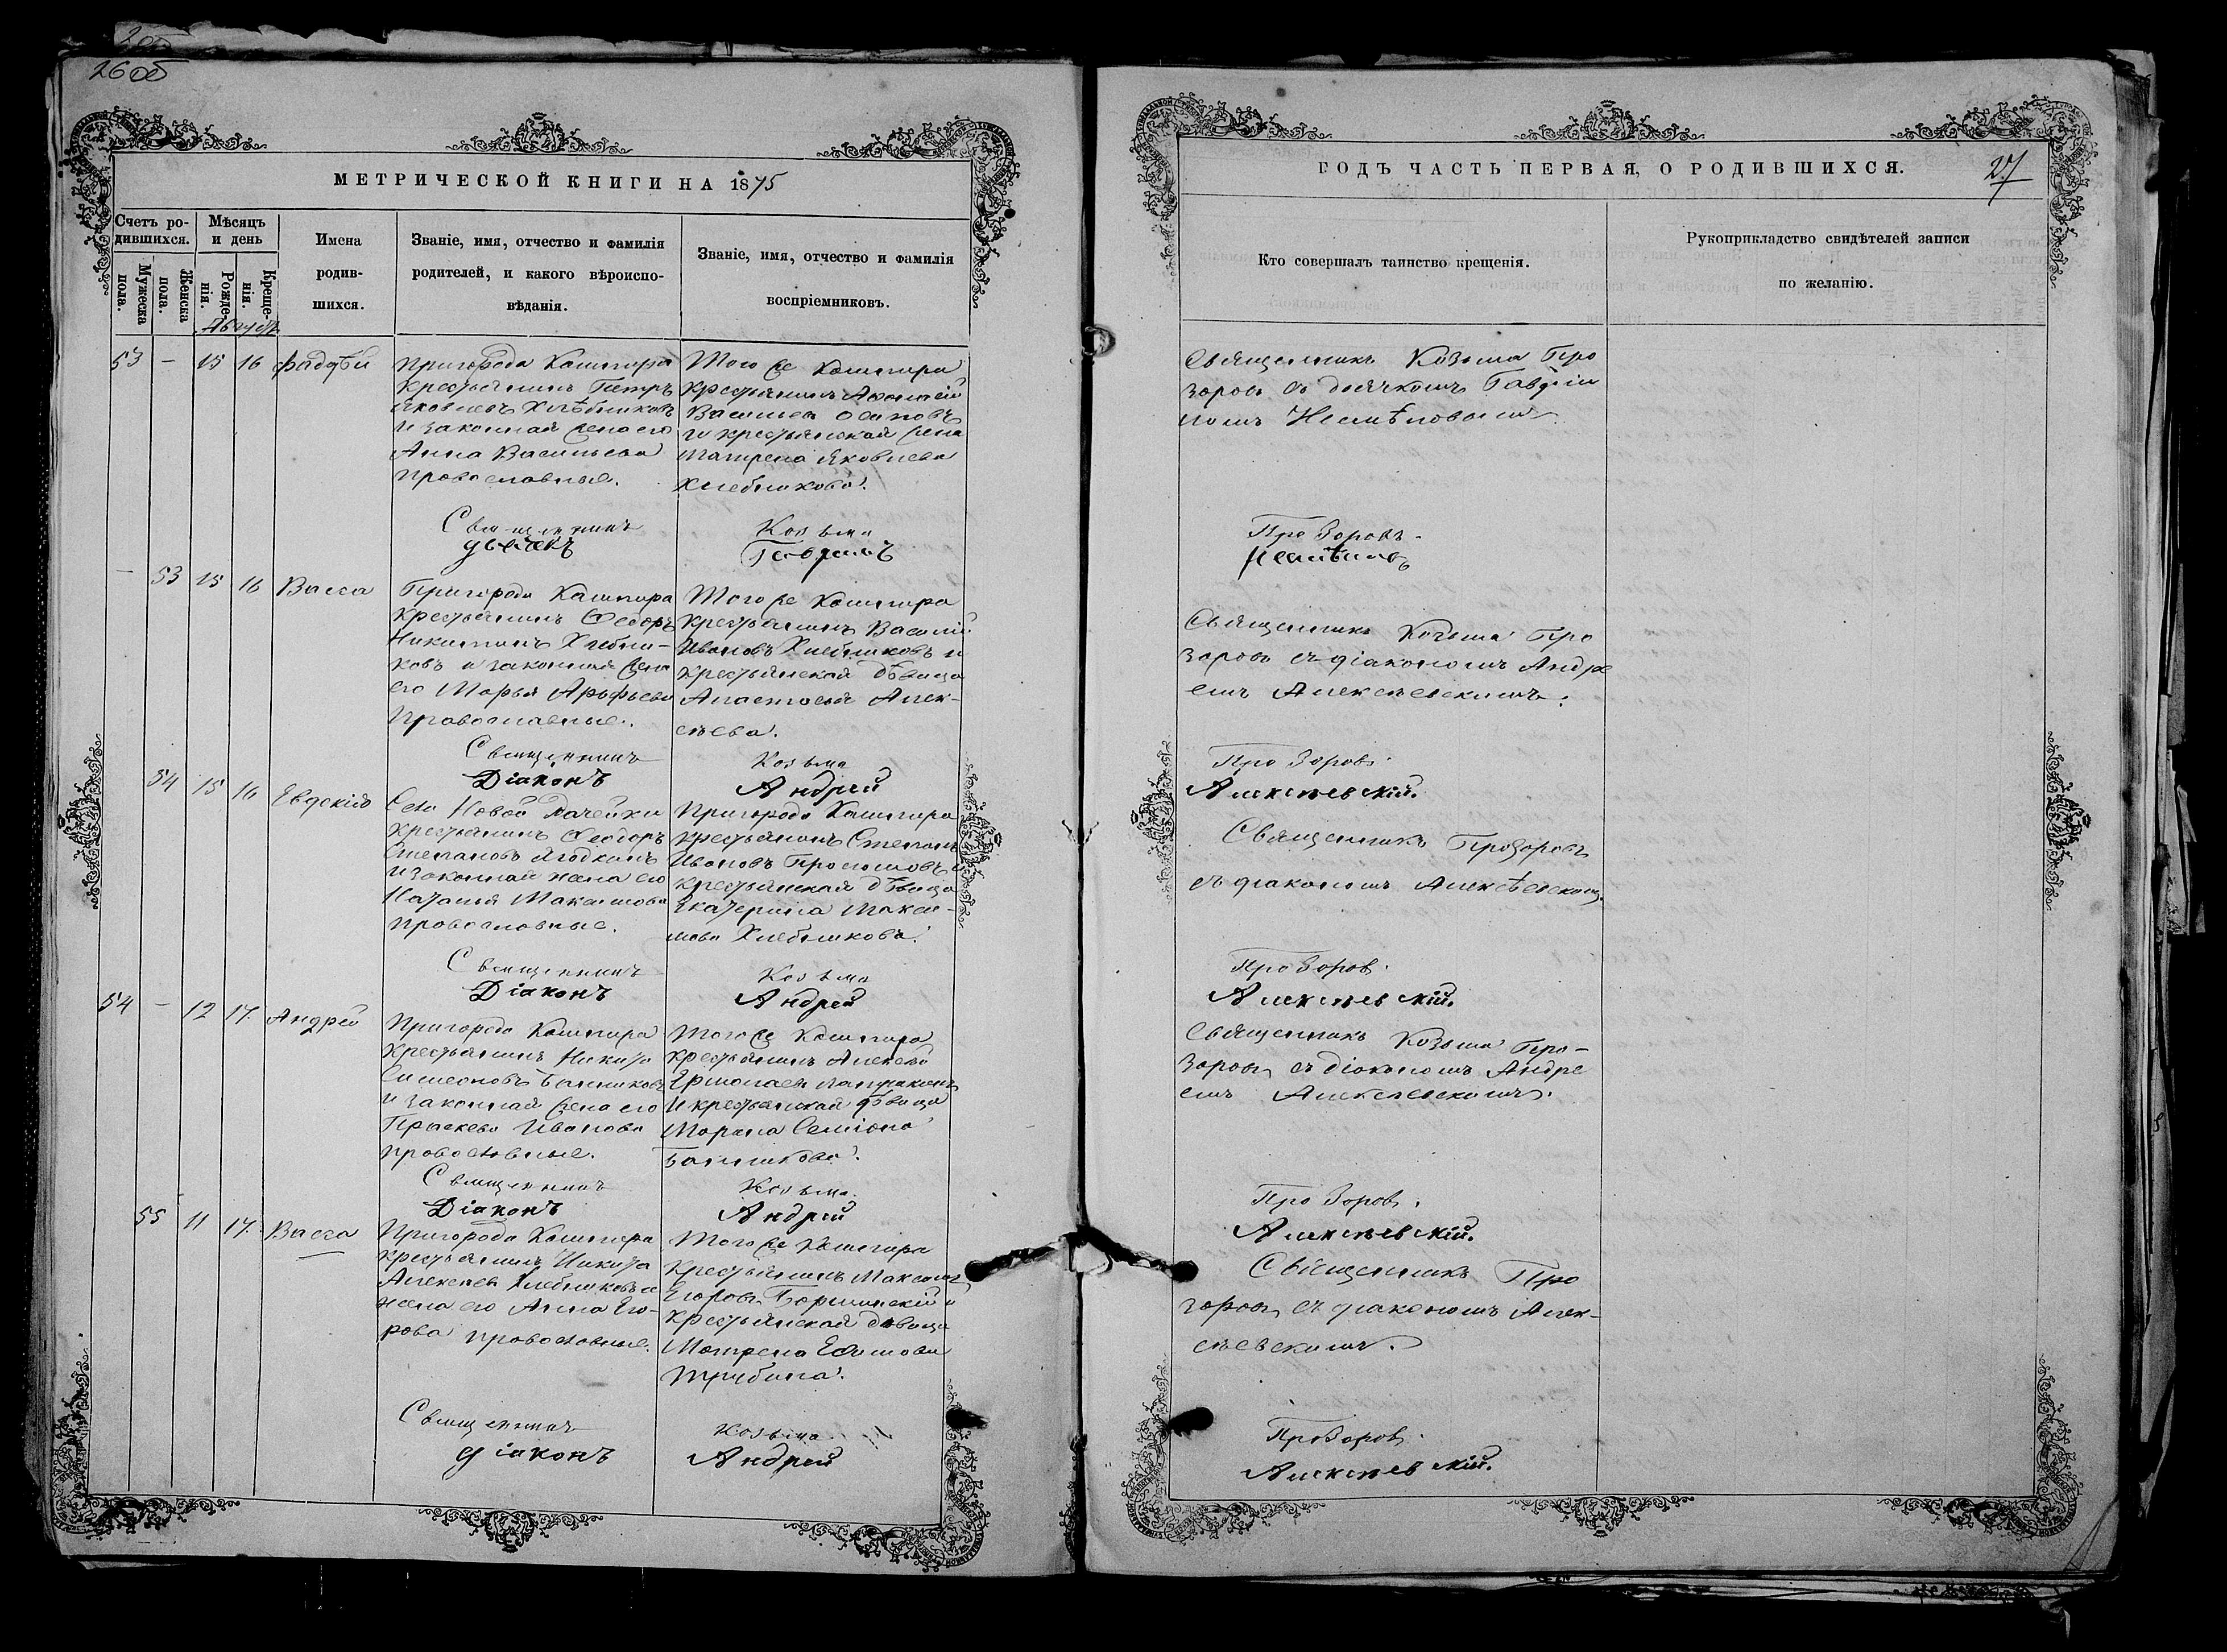 26об
МЕТРИЧЕСКОЙ КНИГИ НА 1875
Счетъ ро-
дившихся.
Мужеска
пола.
Женска
пола.
Мѣсяцъ
и день
Рожде-
нія.
Креще-
нія.
Августъ
Имена
родив-
шихся.
Званіе, имя, отчество и фамилія
родителей, и какого вѣроиспо-
вѣданія.
Званіе, имя, отчество и фамилія
воспріемниковъ.
53 - 15 16 Фадѣй
Пригорода Кашпира
крестьянинъ Петръ
Яковлевъ Хлѣбниковъ
и законная жена его
Анна Васильева
православные.
Того же Кашпира
крестьянинъ
Васильев Осиповъ
и крестьянская жена
Матрена Яковлева
Хлебникова.
Священникъ Козьма
дьячекъ Гавріилъ
- 53 15 16 Васса
Пригорода Кашпира
крестьянинъ Ѳедоръ
Никитинъ Хлебни-
ковъ и законная жена
его Марья
Православные.
Того же Кашпира
крестьянинъ Василій
Ивановъ Хлебниковъ и
крестьянская дѣвица
Анастасія Алек-
сѣева.
Священникъ Козьма
Діаконъ Андрей
54 15 16 Евдокія
Села Новой Рачейки
крестьянинъ Ѳеодоръ
Степановъ Ягодкинъ
и законная жена его
Наталья Максимова
православные.
Пригорода Кашпира
крестьянинъ Степанъ
Ивановъ
крестьянская дѣвица
Екатерина Макси-
мова Хлебникова.
Священникъ Козьма
Діаконъ Андрей
54 - 12 17. Андрей
Пригорода Кашпира
крестьянинъ Никита
Симеоновъ Банниковъ
и законная жена его
Прасковья Иванова
православные.
Того же Кашпира
крестьянинъ Алексей
Ермолаев
и крестьянская дѣвица
Марина
Банникова.
Священникъ Козьма
Діаконъ Андрей
55 11 17. Васса
Пригорода Кашпира
крестьянинъ Никита
Алексеев Хлебниковъ и
жена его Анна Его-
рова православные.
Того же Кашпира
крестьянинъ Максимъ
Егоровъ и
крестьянская дѣвица
Матрена Ефимова
Трубина.
Священникъ Козьма
діаконъ Андрей
ГОДЪ ЧАСТЬ ПЕРВАЯ, О РОДИВШИХСЯ.
27
Кто совершалъ таинство крещенія.
Рукоприкладство свидѣтелей записи
по желанію.
Священникъ Козьма Про
зоровъ съ дьячкомъ Гавріи
ломъ Несмѣловымъ
Прозоровъ.
Несмѣловъ
Священникъ Козьма Про
зоровъ съ діакономъ Андре
емъ Алексѣевскимъ.
Прозоровъ.
Алексѣевскій.
Священникъ Прозоровъ
съ діакономъ Алексѣевскимъ.
Прозоровъ.
Алексѣевскій.
Священникъ Козьма Про-
зоровъ съ діакономъ Андре
емъ Алексѣевскимъ.
Прозоровъ.
Алексѣевскій.
Священникъ Про
зоровъ съ діакономъ Алек-
сѣевскимъ.
Прозоровъ.
Алексѣевскій.